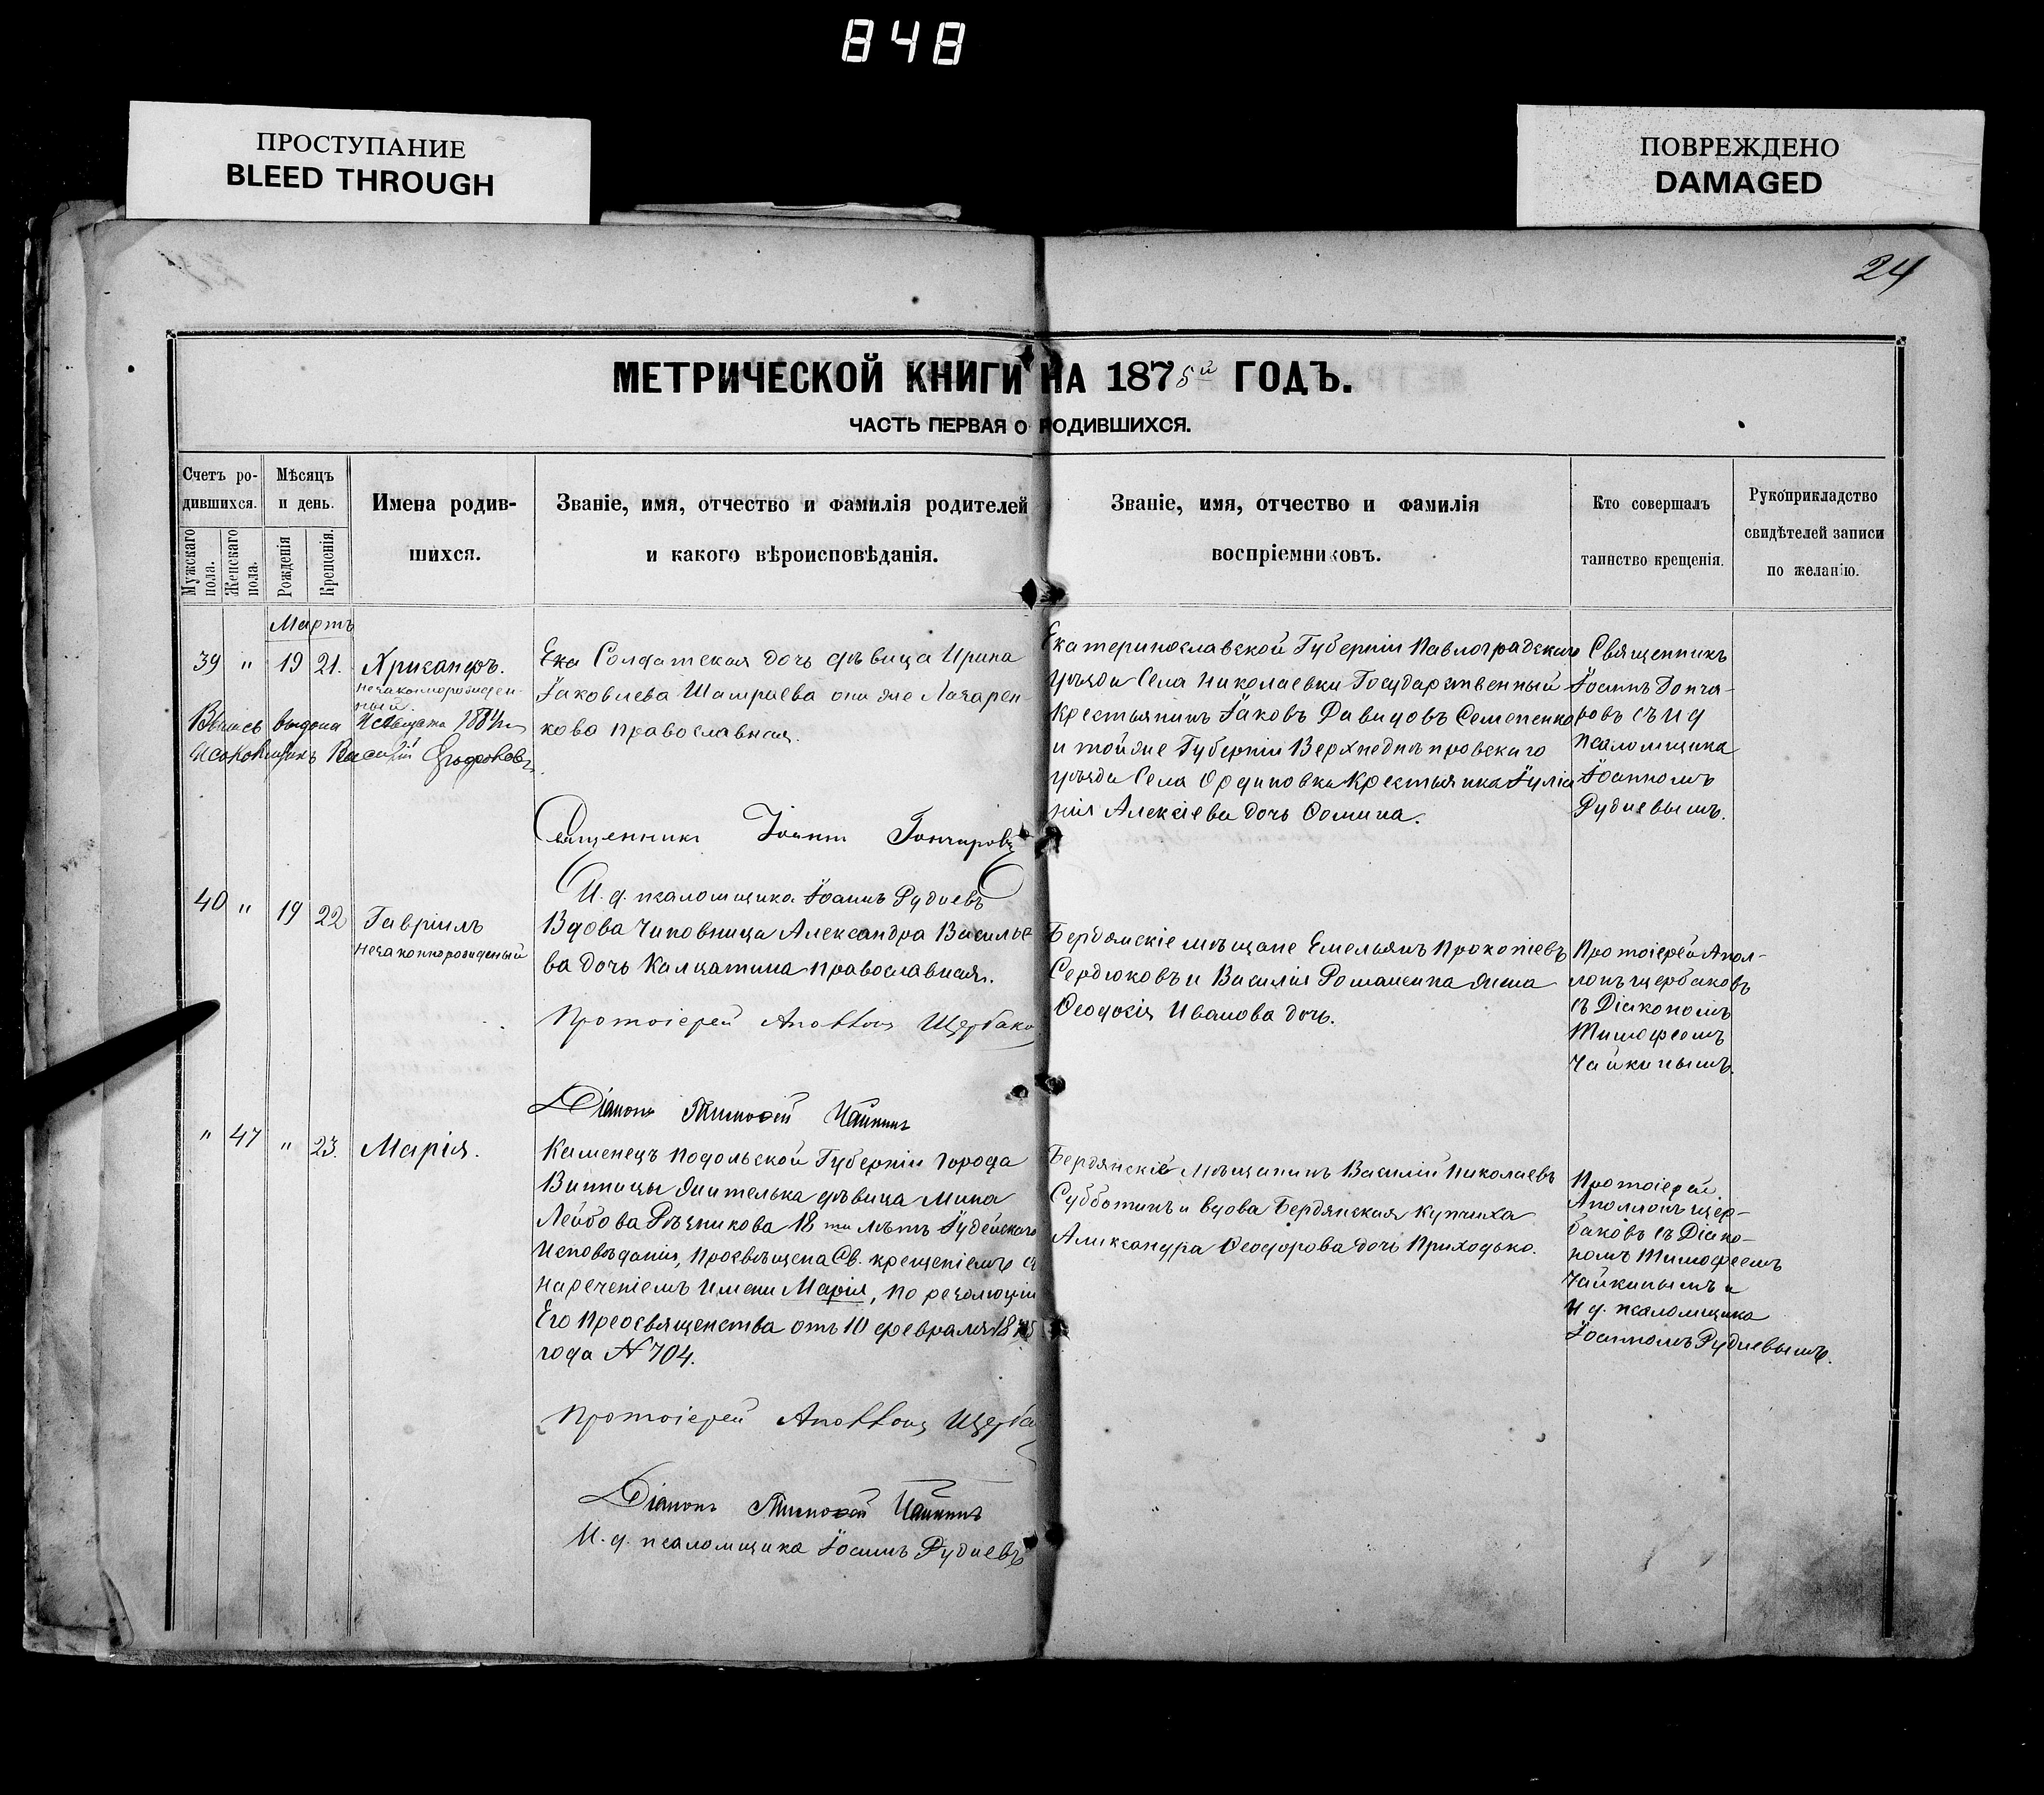 848
ПРОСТУПАНИЕ
BLEED THROUGH
ПОВРЕЖДЕНО
DAMAGED
24
МЕТРИЧЕСКОЙ КНИГИ НА 1875й ГОДЪ.
ЧАСТЬ ПЕРВАЯ О РОДИВШИХСЯ.
Счетъ ро-
дившихся.
Мужскаго пола.
Женскаго пола.
Мѣсяцъ
и день.
Рожденія
Крещенія.
Имена родив-
шихся.
Званіе, имя, отчество и фамилія родителей
и какого вѣроисповѣданія.
Званіе, имя, отчество и фамилія
воспріемниковъ.
Кто совершалъ
таинство крещенія.
Рукоприкладство
свидѣтелей записи
по желанію.
Мартъ
39 " 19 21.
Хрисанфъ.
незаконнорожден-
ный.
выдана
Василій
Солдатская дочь дѣвица Ирина
Іаковлева она же Лазарен-
кова православная.
Священникъ Іоаннъ Гончаровъ
И. д. псаломщика Іоаннъ Рудневъ
Екатеринославской Губерніи Павлоградскаго
уѣзда Села Николаевки Государственный
Крестьянинъ Іаковъ Давидовъ Семененко
и той же Губерніи Верхнеднѣпровскаго
уѣзда Села Крестьянка Іуліа
нія Алексіева дочь Фомина.
Священникъ
Іоаннъ Гонча-
ровъ съ и д
псаломщика
Іоанномъ
Рудневымъ.
40 " 19 22
Гавріилъ
незаконнорожденый
Вдова Чиновница Александра Василье
ва дочь Калцатина православная.
Протоіерей Аполлонъ Щербако
Діаконъ Тимофей Чайкинъ
Бердянскіе мѣщане Емельянъ Прокопіевъ
Сердюковъ и Василія Романенка жена
Феодосія Иванова дочь.
Протоіерей Апол-
лонъ Щербаковъ
съ Діакономъ
Тимофеемъ
Чайкинымъ.
" 47 " 23.
Марія.
Каменецъ Подольской Губерніи города
Винницы жителька дѣвица Мина
Лейбова Рѣзникова 18ти лѣтъ Іудейскаго
Исповѣданія, просвѣщена Св. крещеніемъ съ
нареченіемъ имени Марія, по резолюціи
Его Преосвященства отъ 10 февраля 1875
года N 704.
Протоіерей Аполлонъ Щерба
Діаконъ Тимофей Чайкинъ
И. д. псаломщика Іоаннъ Рудневъ
Бердянскій Мѣщанинъ Василій Николаевъ
Субботинъ и вдова Бердянская купчиха
Александра Феодорова дочь Приходько.
Протоіерей
Аполлонъ Щер-
баковъ съ Діако-
номъ Тимофеемъ
Чайкинымъ и
И д. псаломщика
Іоанномъ Рудневымъ.